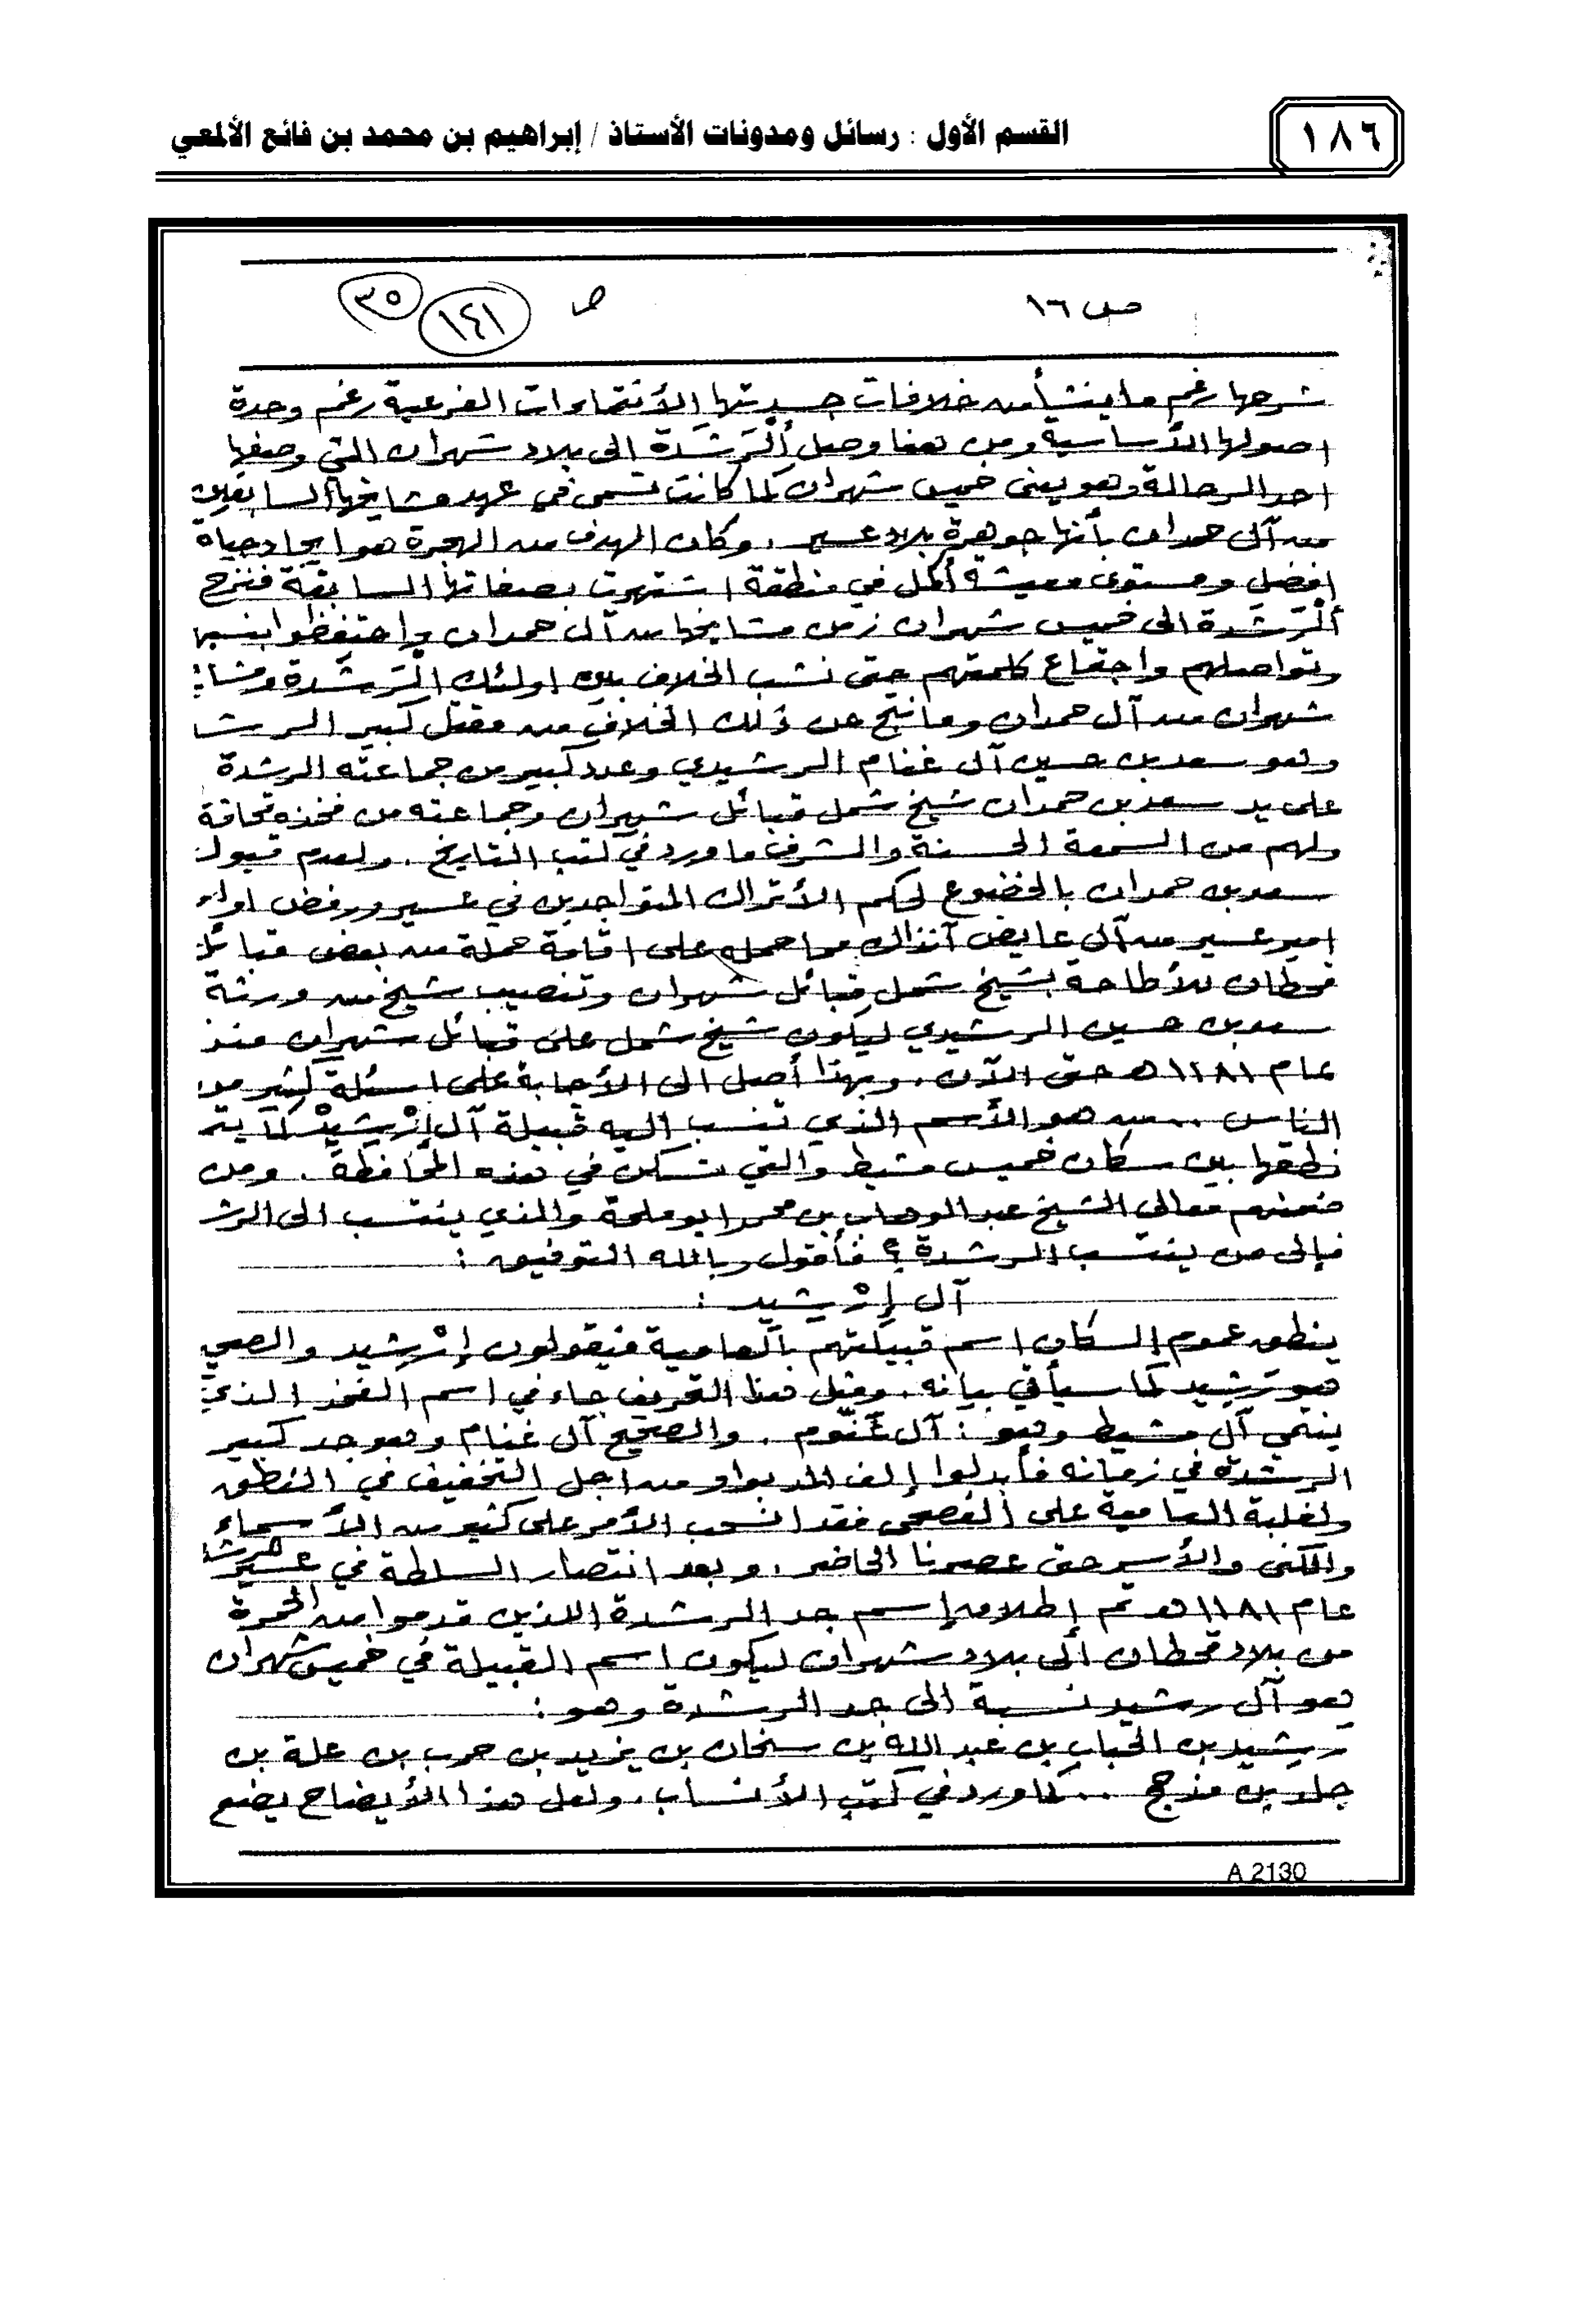 ١٨٦
القسم الأول : رسائل ومدونات الأستاذ / إبراهيم بن محمد بن فائع الألمعي
ص ١٦
ص
١٤١
٣٥
شرحها رغم ما ينشأ من خلافات جسدتها الأنتماءات الفرعية رغم وحدة
اصولها الأساسية ومن هنا وصل الرشدة الى بلاد شهران التي وصفها
احد الرحالة وهو يعني خميس شهران كما كانت تسمى في عهد مشايخها السابقين
من آل حمدان بأنها جوهرة بلاد عسير . وكان الهدف من الهجرة هو ايجاد حياة
افضل ومستوى معيشة أكمل في منطقة اشتهرت بصفاتها السابقة فنزح
الرشدة الى خميس شهران زمن مشايخها من آل حمدان واحتفظوا بنسبها
وتواصلهم واجتماع كلمتهم حتى نشب الخلاف بين اولئك الرشدة ومشا
شهران من آل حمدان وما نتج عن ذلك الخلاف من مقتل كبير الرشـ
وهو سعد بن حسين آل غنام الرشيدي وعدد كبير من جماعته الرشدة
على يد سعد بن حمدان شيخ شمل قبائل شهران وجماعته من فخذه
ولهم من السمعة الحسنة والشرف ما ورد في كتب التاريخ . ولعدم قبول
سعد بن حمدان بالخضوع لحكم الأتراك المتواجدين في عسير ورفض
امير عسير من آل عايض آنذاك مما حمله على اقامة حملة من بعض قبائل
قحطان للأطاحة بشيخ شمل قبائل شهران وتنصيب شيخ من ورثة
سعد بن حسين الرشيدي ليكون شيخ شمل على قبائل شهران منذ
عام ١٢٨١ هـ حتى الآن . وبهذا أصل الى الأجابة على اسئلة كثير من
الناس .. من هو الأسم الذي تنسب اليه قبيلة آل إرْشِيدْ كما يتم
نطقها بين سكان خميس مشيط والتي تسكن في هذه المحافظة . ومن
ضمنهم معالي الشيخ عبد الوهاب بن محمد ابو ملحة والذي ينتسب الى الرشـ
فإلى من ينتسب الرشدة ؟ فأقول وبالله التوفيق :
آل إرْشيد :
ينطق عموم السكان اسم قبيلتهم بالعامية فيقولون إرْشيد والصحيـ
هو رشيد كما سيأتي بيانه . ومثل هذا التحريف جاء في اسم الفخذ الذي
ينتمي آل مشيط وهو : آل غنّوم . والصحيح آل غنام وهو جد كبير
الرشدة في زمانه فأبدلوا إلف المد بواو من اجل التخفيف في النطق
ولغلبة العامية على الفصحى فقد انسحب الأمر على كثير من الأسماء
والكنى والأسر حتى عصرنا الحاضر . وبعد انتصار السلطة في عسير
عام ١١٨١ هـ تم إطلاق إسم جد الرشدة الذين قدموا من الحمرة
من بلاد قحطان الى بلاد شهران ليكون اسم القبيلة في خميس شهران
هو آل رشيد نسبة الى جد الرشدة وهو :
رشيد بن الحباب بن عبد الله بن سنحان بن يزيد بن حرب بن علة بن
جلد بن مذحج .. كما ورد في كتب الأنساب . ولعل هذا الأيضاح يضع
A 2130